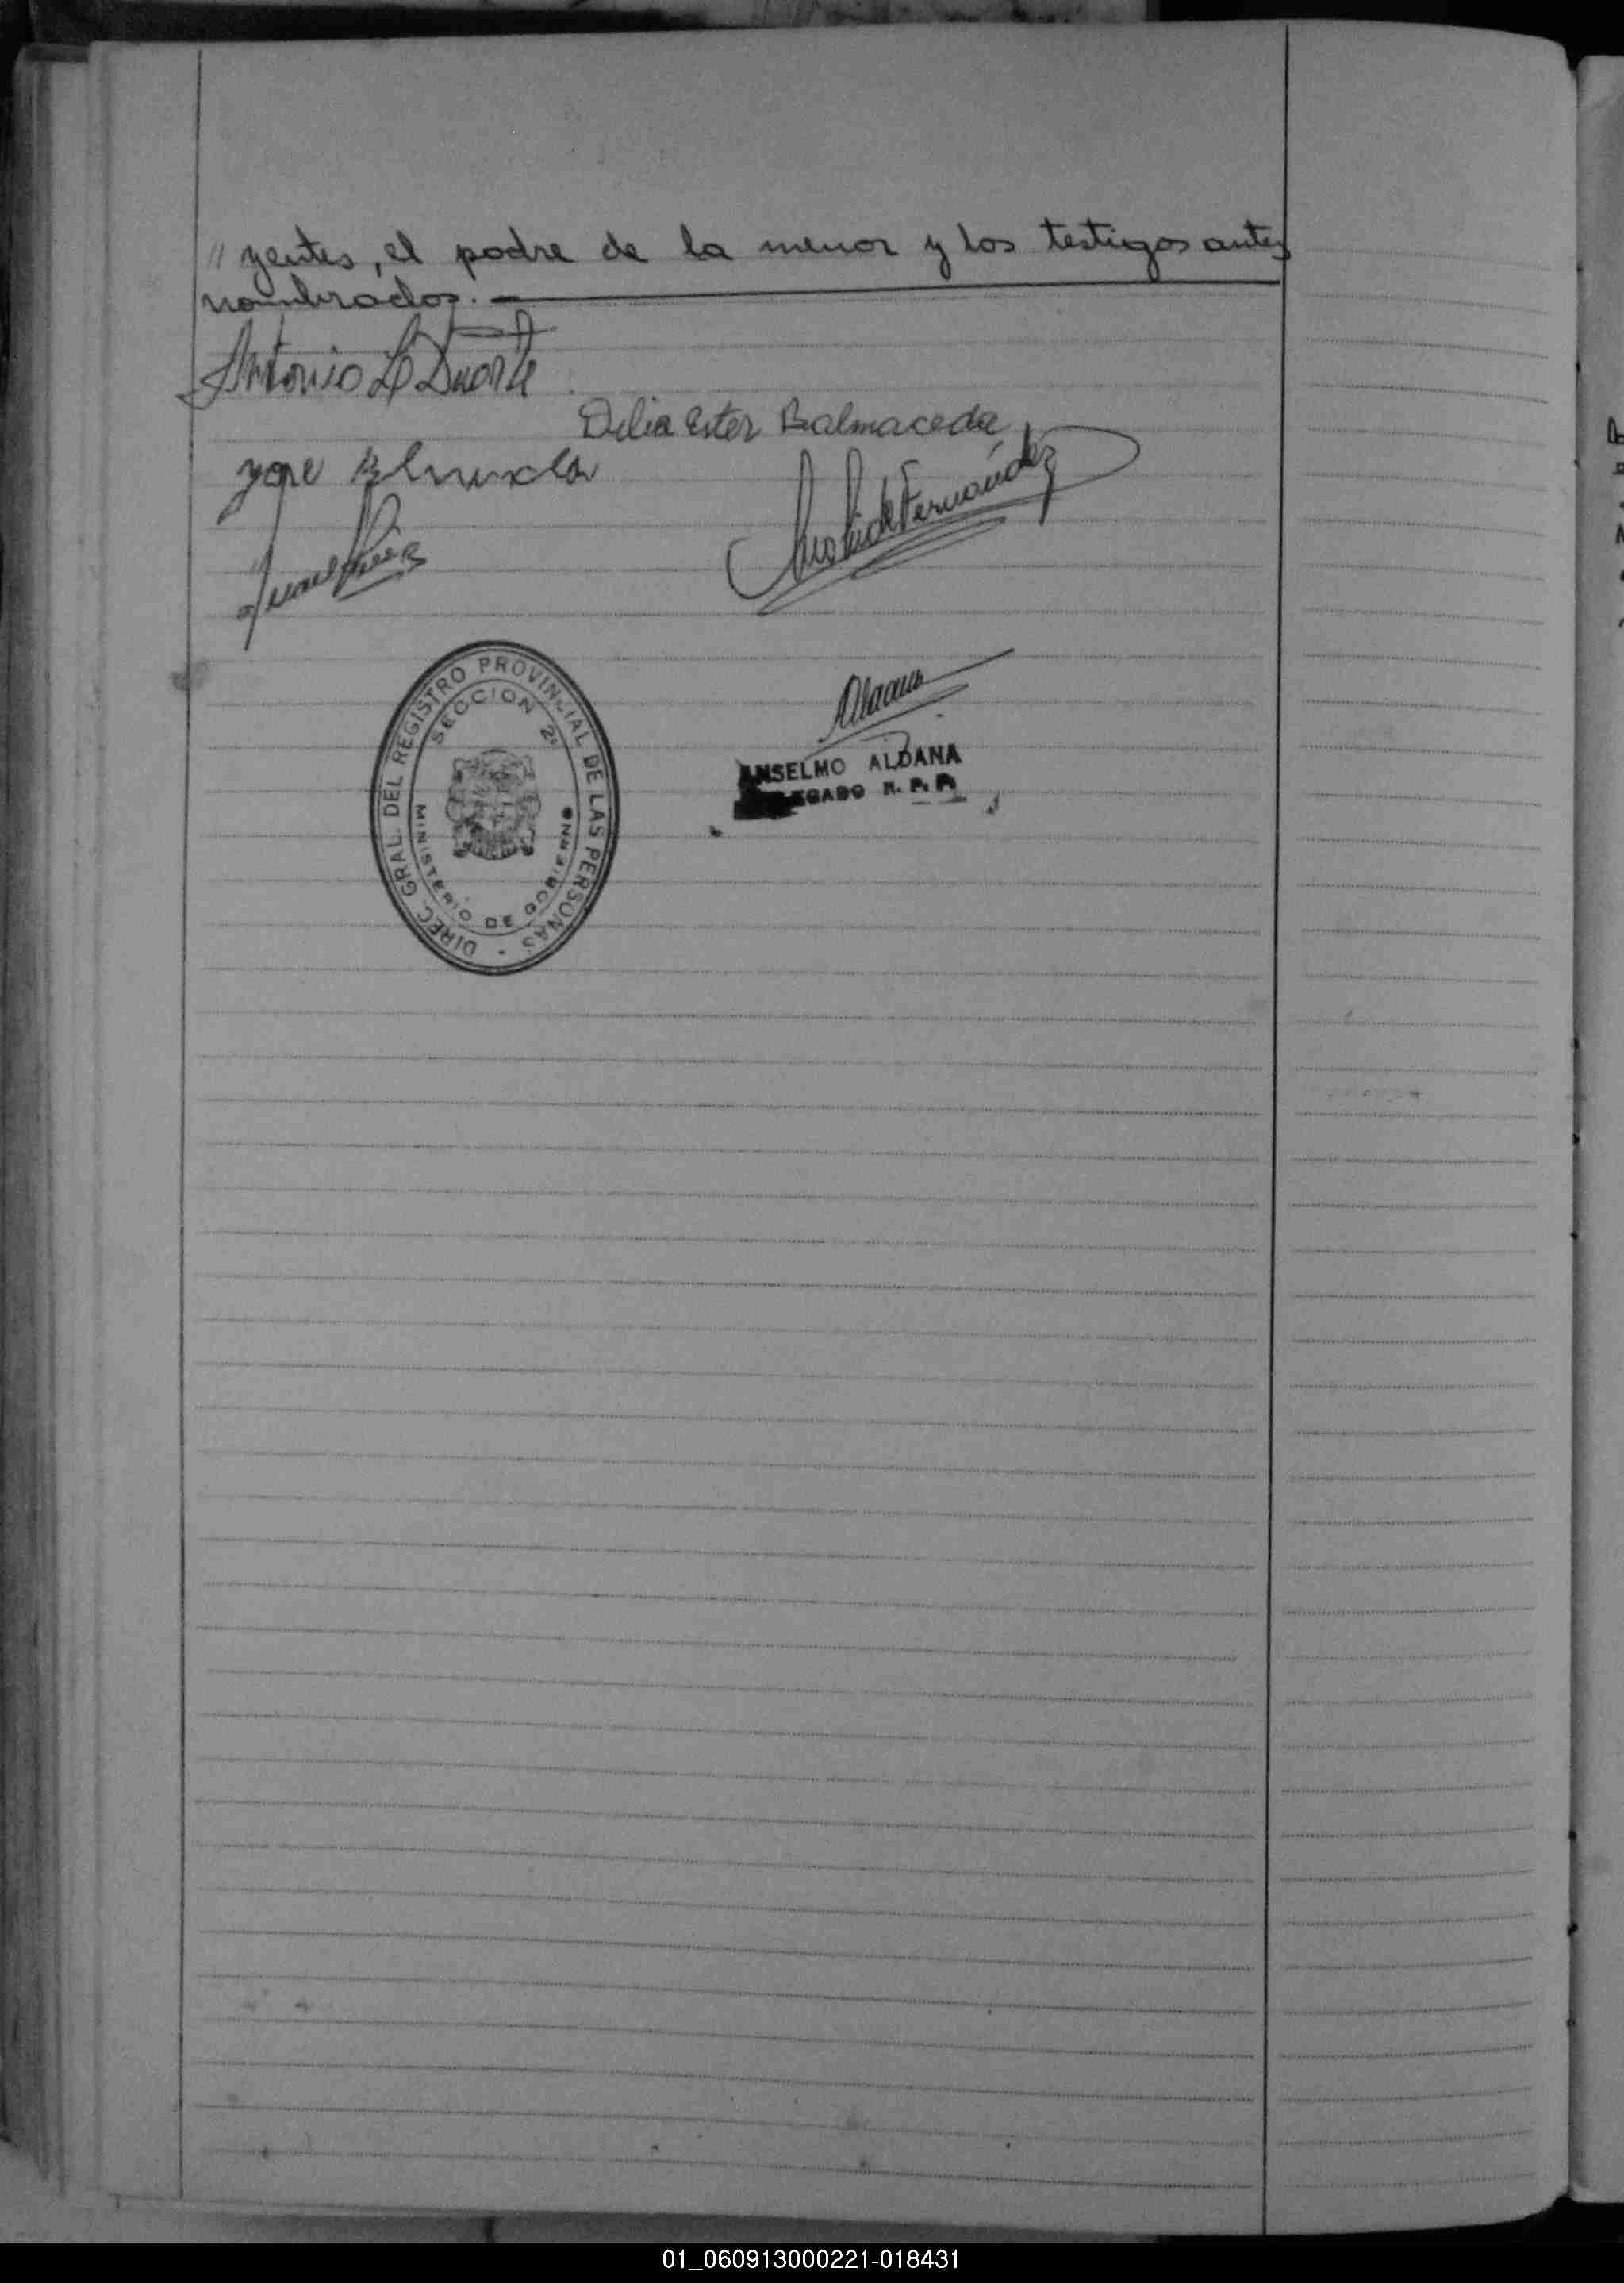 " yentes, el padre de la menor y los testigos antes
nombrados. —
Antonio L Duarte
Delia Ester Balmaceda
Jose Balmaceda
de Fernández
Juan
DIREC. GRAL. DEL REGISTRO PROVINCIAL DE LAS PERSONAS
SECCION 2ª
MINISTERIO DE GOBIERNO
ANSELMO ALDANA
DELEGADO R. P. P.
01_060913000221-018431